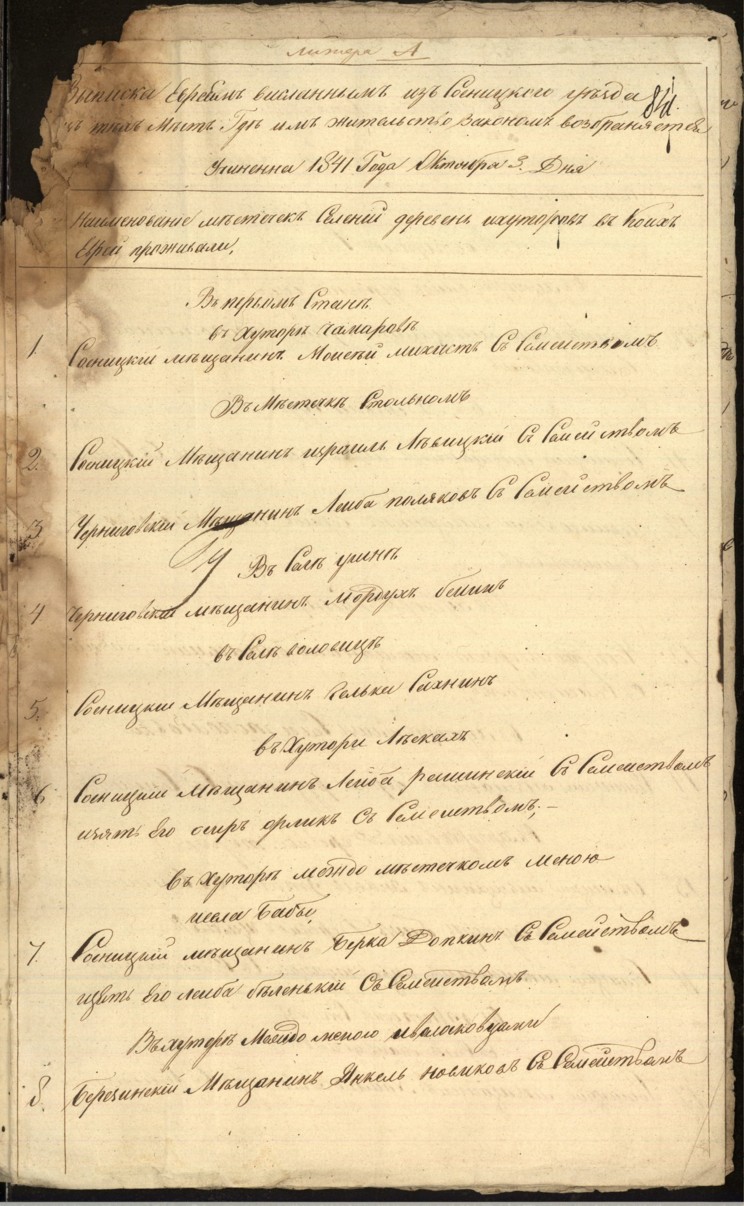 Литера А
84
Выписка Евреямъ висланнымъ изъ Сосницкого уезда
тѣхъ Мѣстъ Где имъ жительство закономъ возбраняется
Учиненна 1841 Года Октобра 3. Дня
Наименование мѣстечекъ Селений деревень ихуторовъ въ Коихъ
Евреи проживали,
Въ первомъ Станѣ
въ Хуторѣ Чамаровѣ
1. Сосницкій мѣщанинъ Моисей Съ Семействомъ
Въ Мѣстечкѣ Столномъ
2. Сосницкій Мѣщанинъ израиль Лѣвицкій Съ Семействомъ
3 Черниговскій Мѣщанинъ Лейба поляковъ Съ Семействомъ
Въ Селѣ
4 Черниговскій мѣщанинъ Мордухъ
въ Селѣ воловицѣ
5. Сосницкій Мѣщанинъ Сахнинъ
въ Хутори Лѣскахъ
6 Сосницкій Мѣщанинъ Лейба рашинскій Съ Семействомъ
изять Его орликъ Съ Семействомъ,
въ Хуторѣ между мѣстечкомъ Меною
исела Бабы,
7. Сосницкій мѣщанинъ Берка Допкинъ Съ Семействомъ
изять Его леиба бѣленькій Съ Семействомъ
Въ хуторѣ Между меною
8. Березинскій Мѣщанинъ Янкель новиковъ Съ Семействомъ